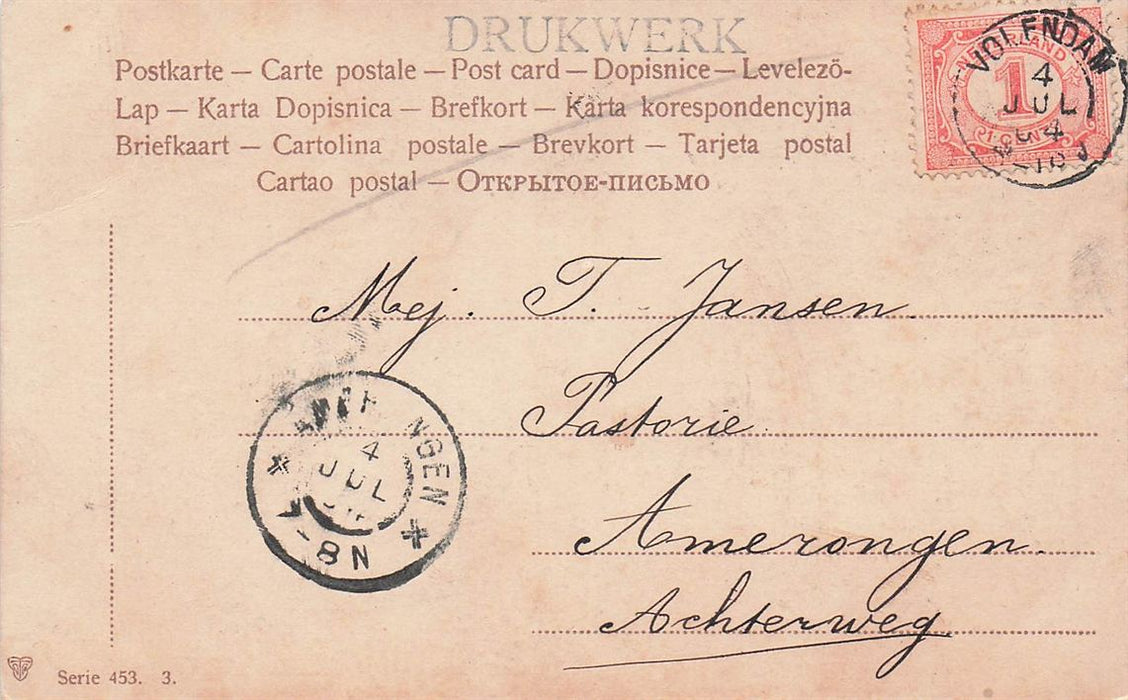 DRUKWERK
Postkarte — Carte postale — Post card — Dopisnice — Levelező-
Lap — Karta Dopisnica — Brefkort — Karta korespondencyjna
Briefkaart — Cartolina postale — Brevkort — Tarjeta postal
Cartao postal — Открытое-письмо
NEDERLAND
1
VOLENDAM
4
JUL
Mej. T. Jansen.
Pastorie
Amerongen.
Achterweg.
4
JUL
7-8N
Serie 453. 3.